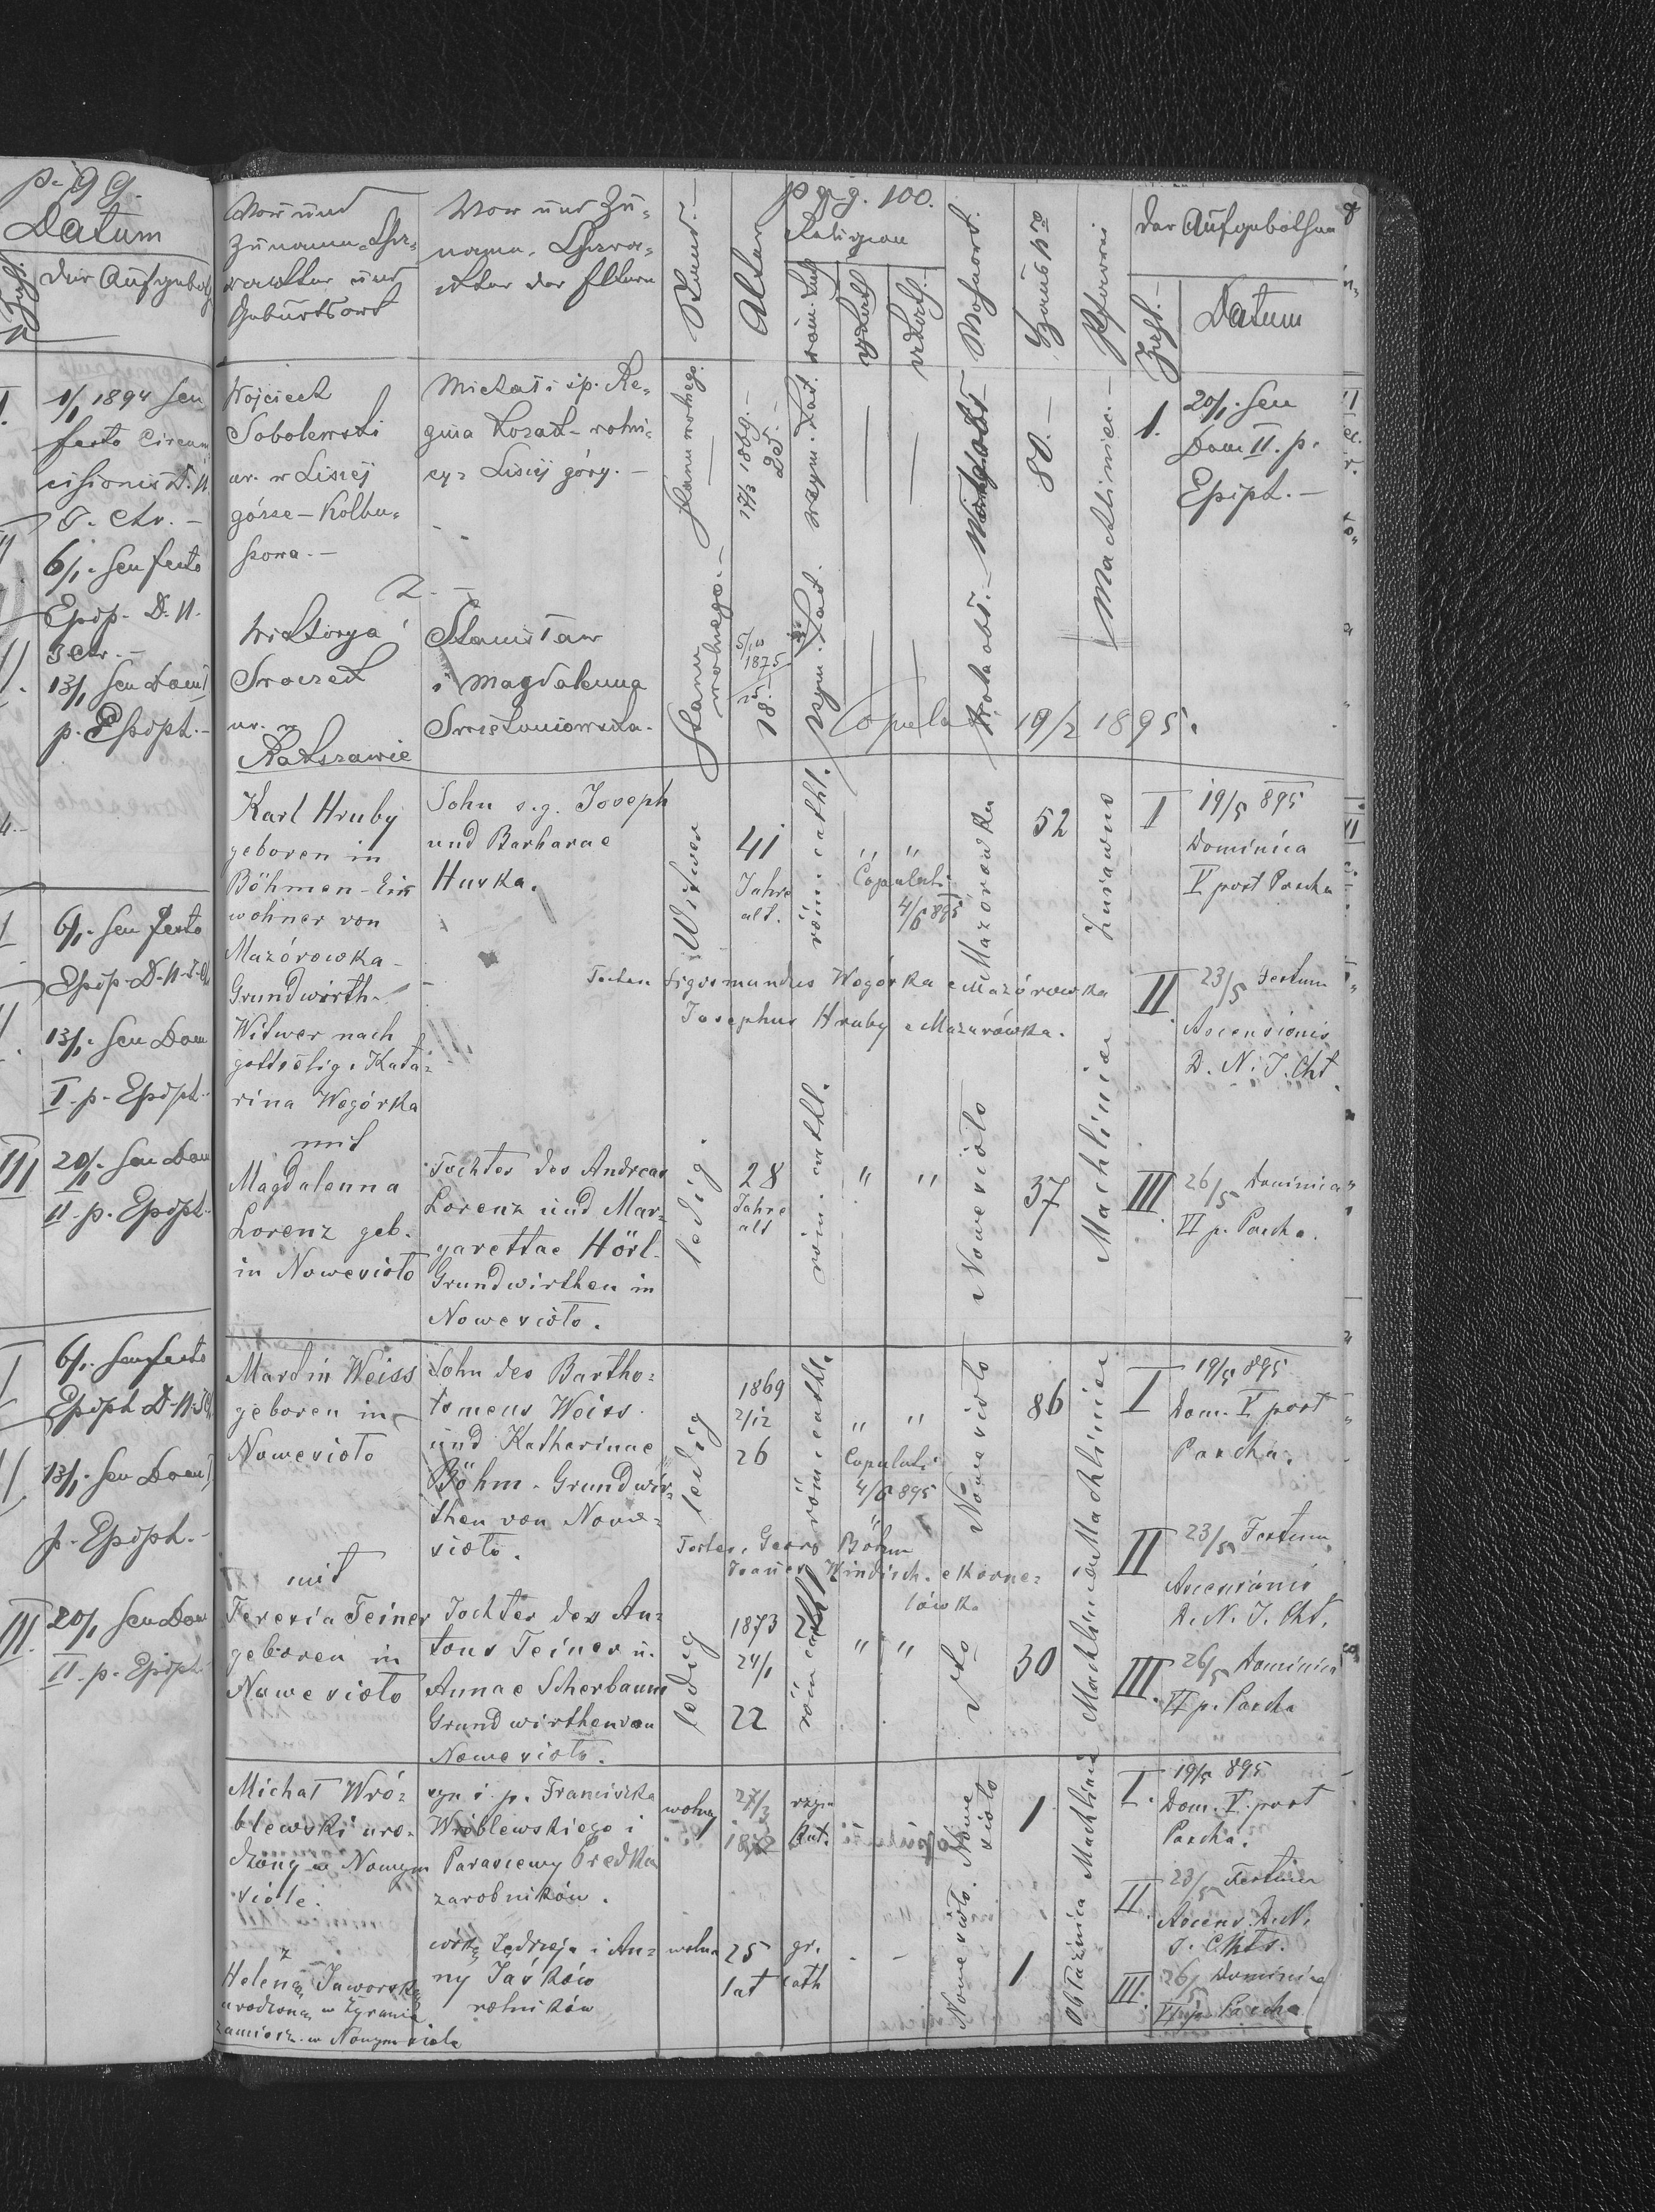 p. 99.
Datum
Zahl.
der Aufgebot
1/1 1894 seu
festo Circum
cisionis D. N.
J. Chr. –
6/1. seu festo
Epip. D. N.
J Chr. –
13/1 seu Dom I
p. Epiph. –
6/1. seu festo
Epip. D. N. J. Ch
13/1. seu Dom
I. p. Epiph.
III 20/1. seu Dom
II. p. Epiph.
6/1. seu festo
Epiph D. N. J Ch
13/1. seu Dom I
p. Epiph. –
III. 20/1 seu Dom
II. p. Epiph.
pag. 100.
Vor und
Zuname, Cha-
rakter und
Geburtsort
Vor und Zu-
name, Chara-
kter der Eltern
Stand. –
Alter
Religion
röm. kath
Wohnort.
Haus Nro
Pfarrei
der Aufgebothen
Zahl. –
Datum
Wojciech
Sobolewski
ur. w Lisiej
górze – Kolbu-
szowa. –
Michał i śp. Re-
gina Kozak – rolni-
cy z Lisiej góry. –
stanu wolnego. –
17/3 1869. –
25. –
rzym. kat.
80. –
Machliniec. –
1.
20/1. seu
Dom II. p.
Epiph. –
z. –
Wiktorya
Swoczek
ur. w
Rakszawie
Stanisław
i Magdalenna
Swistoniowska.
stanu wolnego. –
5/10 1875
18. –
rzym. kat.
Copula 19/2 1895.
Karl Hruby
geboren in
Böhmen – Ein
wohner von
Mazórowka –
Grundwirth –
Witwer nach
gottselig. Kata-
rina Wogórka
mit
Magdalenna
Lorenz geb.
in Nowesioło
Sohn s. g. Joseph
und Barbarae
Huska.
Witwer
41
Jahre
alt.
röm. cathl.
" "
Copulati
4/6 895
Mazórowka
52
Żurawno
I 19/5 895
Dominica
V post Pascha
Testes Sigismundus Wogórka e Mazórowka
Josephus Hruby e Mazurówka.
II 23/5 Festum
Ascensionis
D. N. J. Cht.
Tochter des Andreas
Lorenz und Mar-
garettae Hörl –
Grundwirthen in
Nowesioło.
ledig.
28
Jahre
alt
röm. cathl.
" "
Nowesioło
37
Machliniec
III. 26/5 Dominica
VI p. Pascha.
Martin Weiss
geboren in
Nowesioło
Sohn des Bartho-
lomeus Weiss
und Katherinae
Böhm – Grundwir-
then von Nowe-
sioło.
ledig
1869
2/12
26
röm cathl.
" "
Copulati
4/6 895
Nowesioło
86
Machliniec
I 19/5 895
Dom. V post
Pascha.
Testes, Georg Böhm
Windisch. e Korne-
lówka
II 23/5 Festum
Ascensionis
D. N. J. Cht.
mit
Teresia Teiner
geboren in
Nowesioło
Tochter des An-
tons Teiner u.
Annae Scherbaum
Grundwirthen von
Nowesioło.
ledig
1873
24/1
22
röm cathl
" "
30
Machliniec
III. 26/5 Dominica
VI p. Pascha
Michał Wró-
blewski uro-
dzony w Nowym
siole.
syn ś. p. Franciszka
Wróblewskiego i
Parasiewy Predka
zarobników.
wolny
27/3
rzym
kat.
Nowe
sioło
1
Machliniec
I. 19/5 895
Dom. V. post
Pascha.
II. 23/5 Festum
Ascens. D. N.
J. Chts.
z
Heleną Jaworską
urodzoną w
zamieszk. w Nowym siole
córką Jędrzeja i An-
ny Jaśków
rolników
wolna
25
lat
gr.
cath
Nowe sioło.
1
Obłaźnica
III. 26/5 Dominica
VI p. Pascha